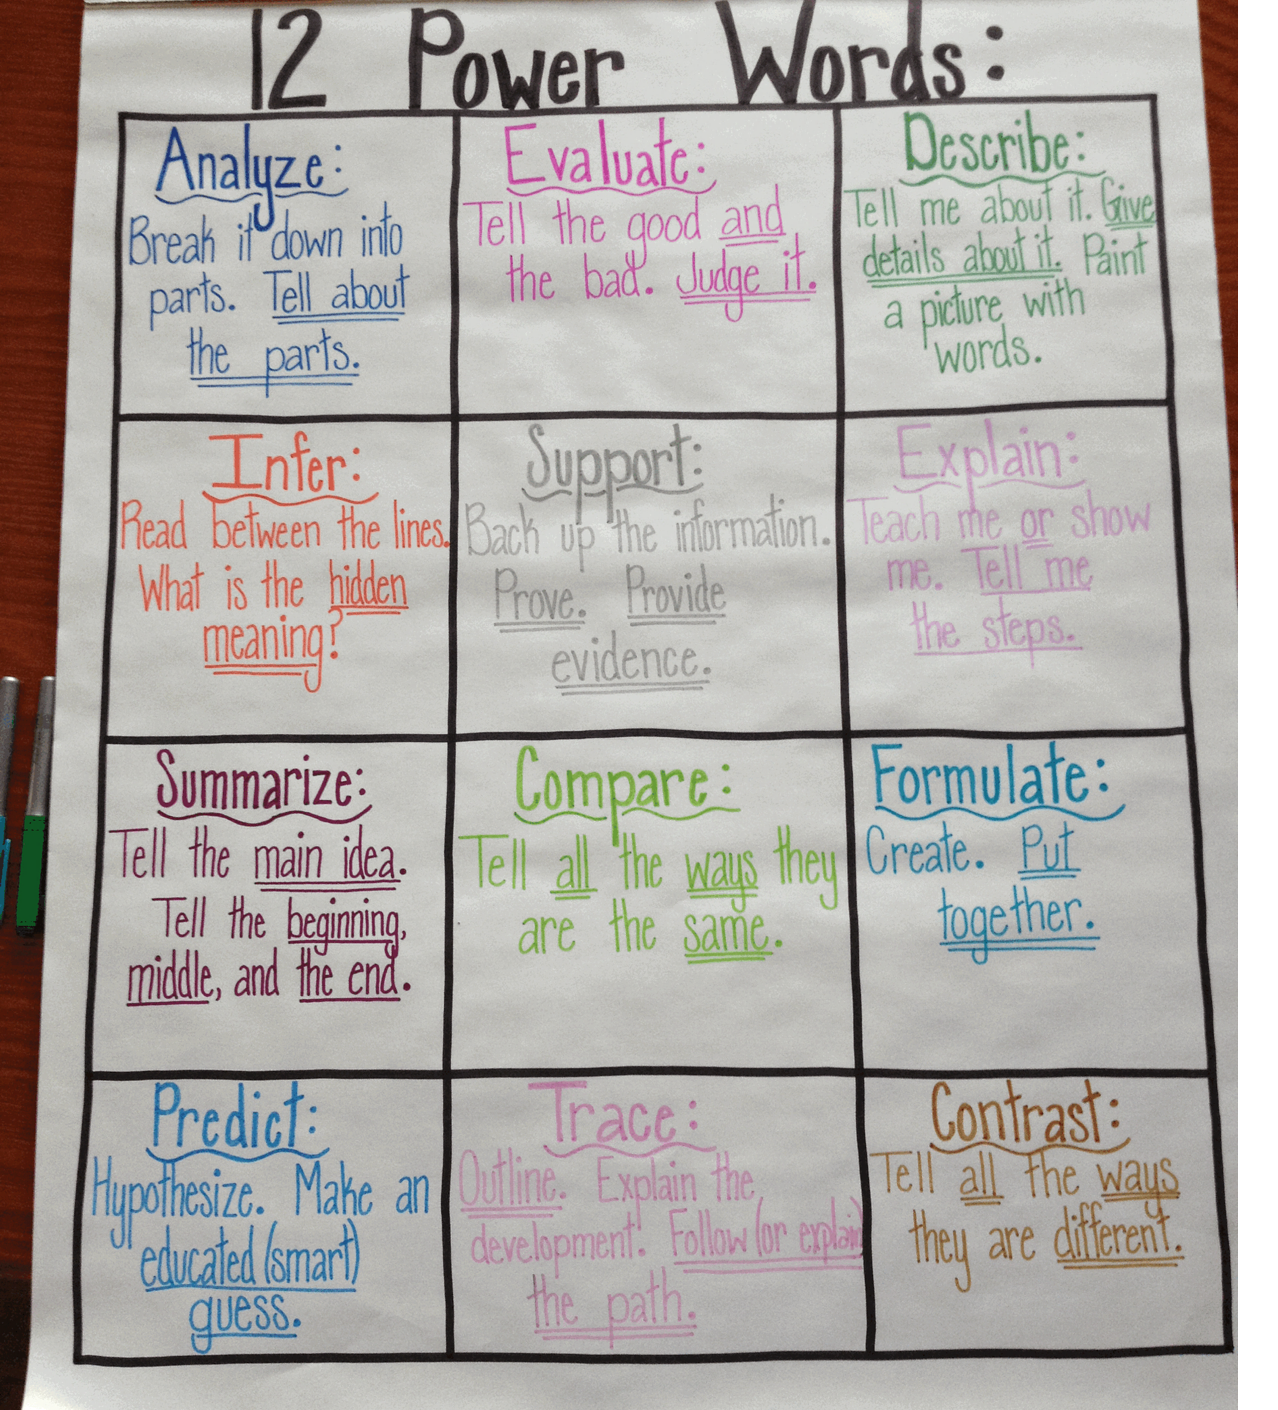 12 Power Words:
Analyze:
Break it down into
parts. Tell about
the parts.
Evaluate:
Tell the good and
the bad. Judge it.
Describe:
Tell me about it. Give
details about it. Paint
a picture with
words.
Infer:
Read between the lines.
What is the hidden
meaning?
Support:
Back up the information.
Prove. Provide
evidence.
Explain:
Teach me or show
me. Tell me
the steps.
Summarize:
Tell the main idea.
Tell the beginning,
middle, and the end.
Compare:
Tell all the ways they
are the same.
Formulate:
Create. Put
together.
Predict:
Hypothesize. Make an
educated (smart)
guess.
Trace:
Outline. Explain the
development. Follow (or explain)
the path.
Contrast:
Tell all the ways
they are different.